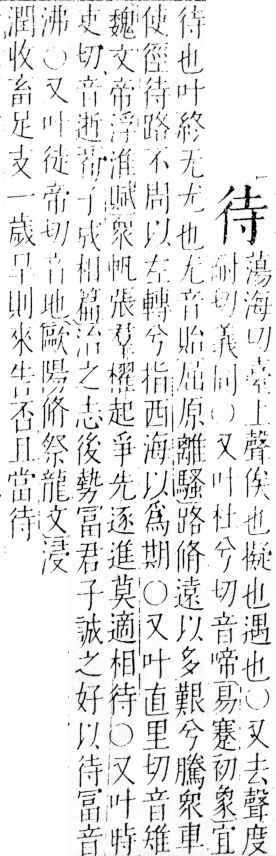 待
蕩海切臺上聲俟也擬也遇也○又去聲度
耐切義同○又叶杜兮切音啼易蹇初象宜
待也叶終无尤也尤音貽屈原離騷路脩遠以多艱兮騰衆車
使徑待路不周以左轉兮指西海以爲期○又叶直里切音雉
魏文帝浮淮賦衆帆張羣櫂起爭先逐進莫適相待○又叶時
吏切音逝荀子成相篇治之志後勢冨君子誠之好以待冨音
沸○又叶徒帝切音地歐陽脩祭龍文浸
潤收畜足支一歲旱則來告否且當待